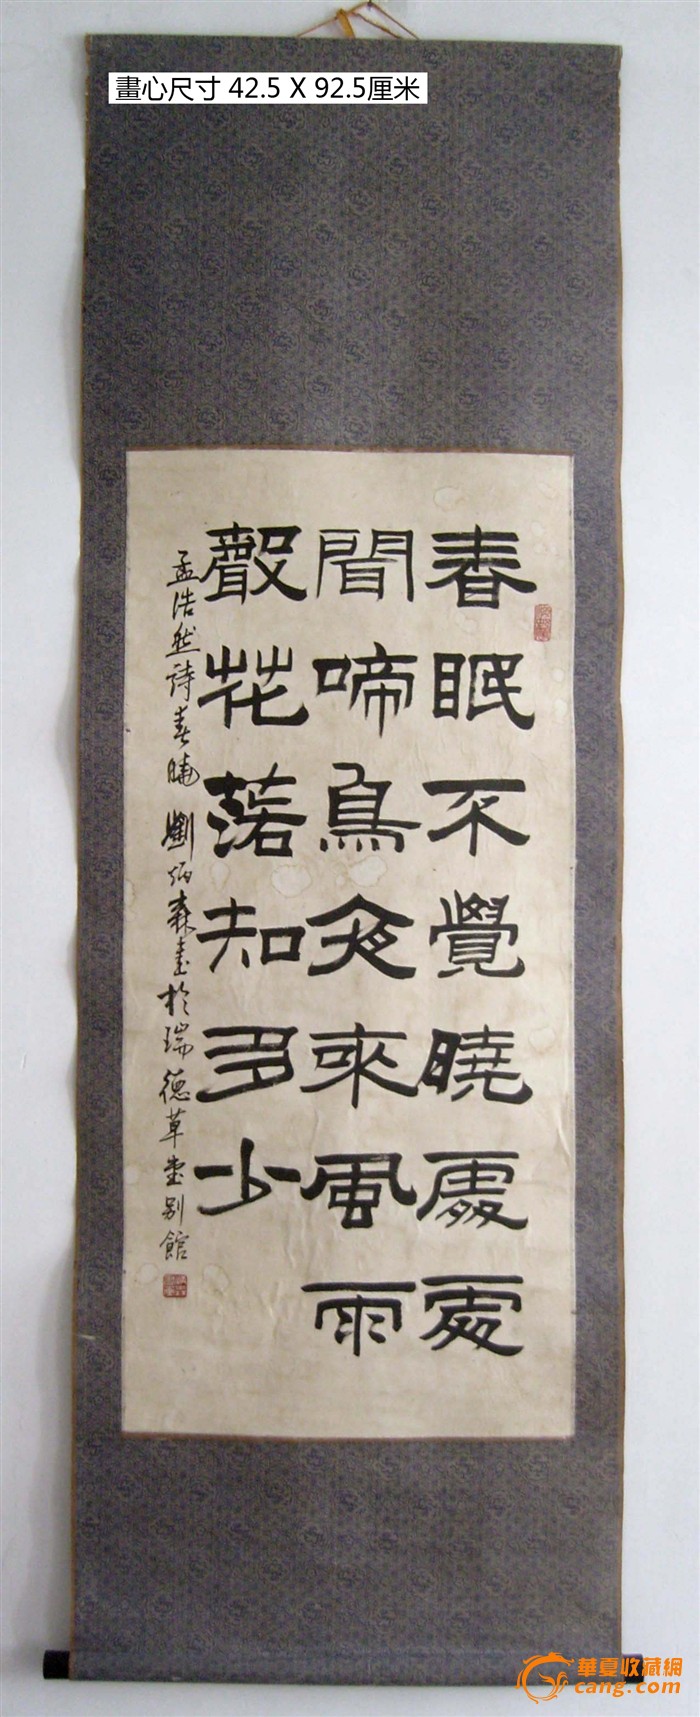 畫心尺寸 42.5 X 92.5厘米
春眠不覺曉處處
聞啼鳥夜來風雨
聲花落知多少
孟浩然詩春曉 劉炳森書於瑞德草堂別館
華夏收藏網
cang.com